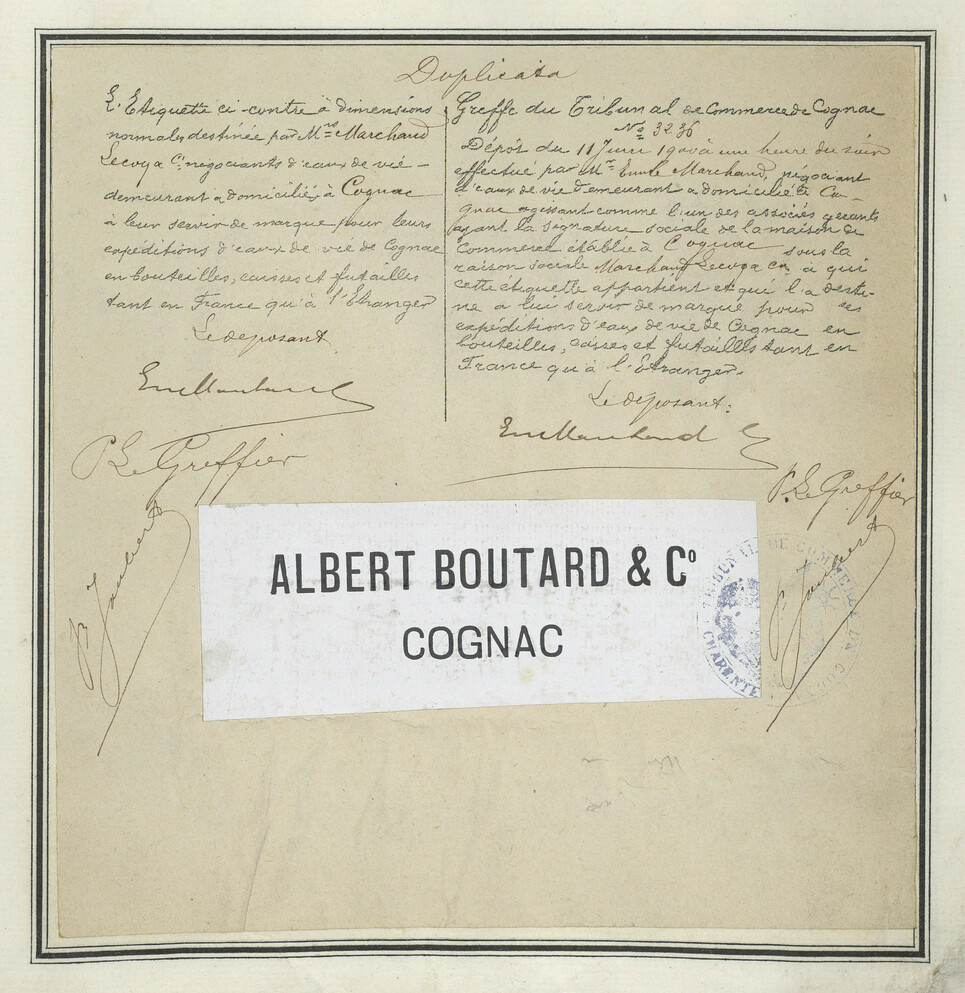 Duplicata
L'Etiquette ci-contre à dimensions
normales destinée par Mrs Marchand
Lecoq a Cie négociants d'eaux de vie -
demeurant a domiciliés à Cognac
à leur servir de marque pour leurs
expéditions d'eaux de vie de Cognac
en bouteilles, caisses et futailles
tant en France qu'à l'Etranger
Le déposant
Em Marchand
P. Le Greffier
Greffe du Tribunal de Commerce de Cognac
No 3236
Dépôt du 11 Juin 1900 à une heure du soir
effectué par Mr Emile Marchand, négociant
d'eaux de vie demeurant a domicilié à Co-
gnac agissant comme l'un des associés gerants
ayant la signature sociale de la maison de
Commerce établie à Cognac sous la
raison sociale Marchand Lecoq a Co à qui
cette étiquette appartient et qui l'a desti-
né à lui servir de marque pour ses
expéditions d'eaux de vie de Cognac en
bouteilles, caisses et futailles tant en
France qu'à l'Etranger.
Le déposant:
Em Marchand
P. Le Greffier
ALBERT BOUTARD & Co
COGNAC
TRIBUNAL DE COMMERCE DE COGNAC
CHARENTE